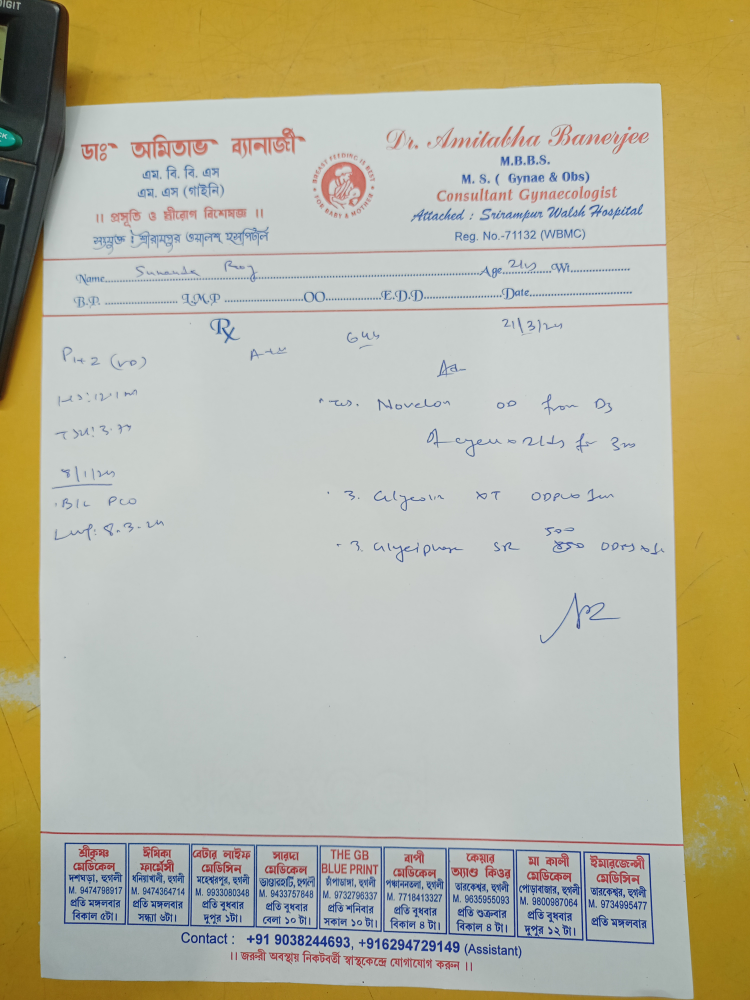 DIGIT
ডাঃ অমিতাভ ব্যানার্জী
এম. বি. বি. এস
এম. এস (গাইনি)
।। প্রসূতি ও স্ত্রীরোগ বিশেষজ্ঞ ।।
সংযুক্ত : শ্রীরামপুর ওয়ালশ হসপিটাল
BREAST FEEDING IS BEST
FOR BABY & MOTHER
Dr. Amitabha Banerjee
M.B.B.S.
M. S. ( Gynae & Obs)
Consultant Gynaecologist
Attached : Srirampur Walsh Hospital
Reg. No.-71132 (WBMC)
Name Sunanda Roy Age 21 Wt
B.P. L.M.P OO E.D.D Date
Rx
21/3/24
P1+2 (VD)
TSH: 3.77
8/1/24
B/L PCO
LMP: 8.3.24
Novelon OD from D3
500
SR 850
শ্রীকৃষ্ণ
মেডিকেল
দশঘড়া, হুগলী
M. 9474798917
প্রতি মঙ্গলবার
বিকাল ৫টা।
ঈমিকা
ফার্মেসী
ধনিয়াখালী, হুগলী
M. 9474364714
প্রতি মঙ্গলবার
সন্ধ্যা ৬টা।
বেটার লাইফ
মেডিসিন
মহেশ্বরপুর, হুগলী
M. 9933080348
প্রতি বুধবার
দুপুর ১টা।
সারদা
মেডিকেল
ভান্ডারহাটি, হুগলী
M. 9433757848
প্রতি বুধবার
বেলা ১০ টা।
THE GB
BLUE PRINT
চাঁপাডাঙ্গা, হুগলী
M. 9732796337
প্রতি শনিবার
সকাল ১০ টা।
বাপী
মেডিকেল
পঞ্চাননতলা, হুগলী
M. 7718413327
প্রতি বুধবার
বিকাল ৪ টা।
কেয়ার
অ্যাণ্ড কিওর
তারকেশ্বর, হুগলী
M. 9635955093
প্রতি শুক্রবার
বিকাল ৪ টা।
মা কালী
মেডিকেল
পোড়াবাজার, হুগলী
M. 9800987064
প্রতি বুধবার
দুপুর ১২ টা।
ইমারজেন্সী
মেডিসিন
তারকেশ্বর, হুগলী
M. 9734995477
প্রতি মঙ্গলবার
Contact : +91 9038244693, +916294729149 (Assistant)
।। জরুরী অবস্থায় নিকটবর্তী স্বাস্থকেন্দ্রে যোগাযোগ করুন ।।